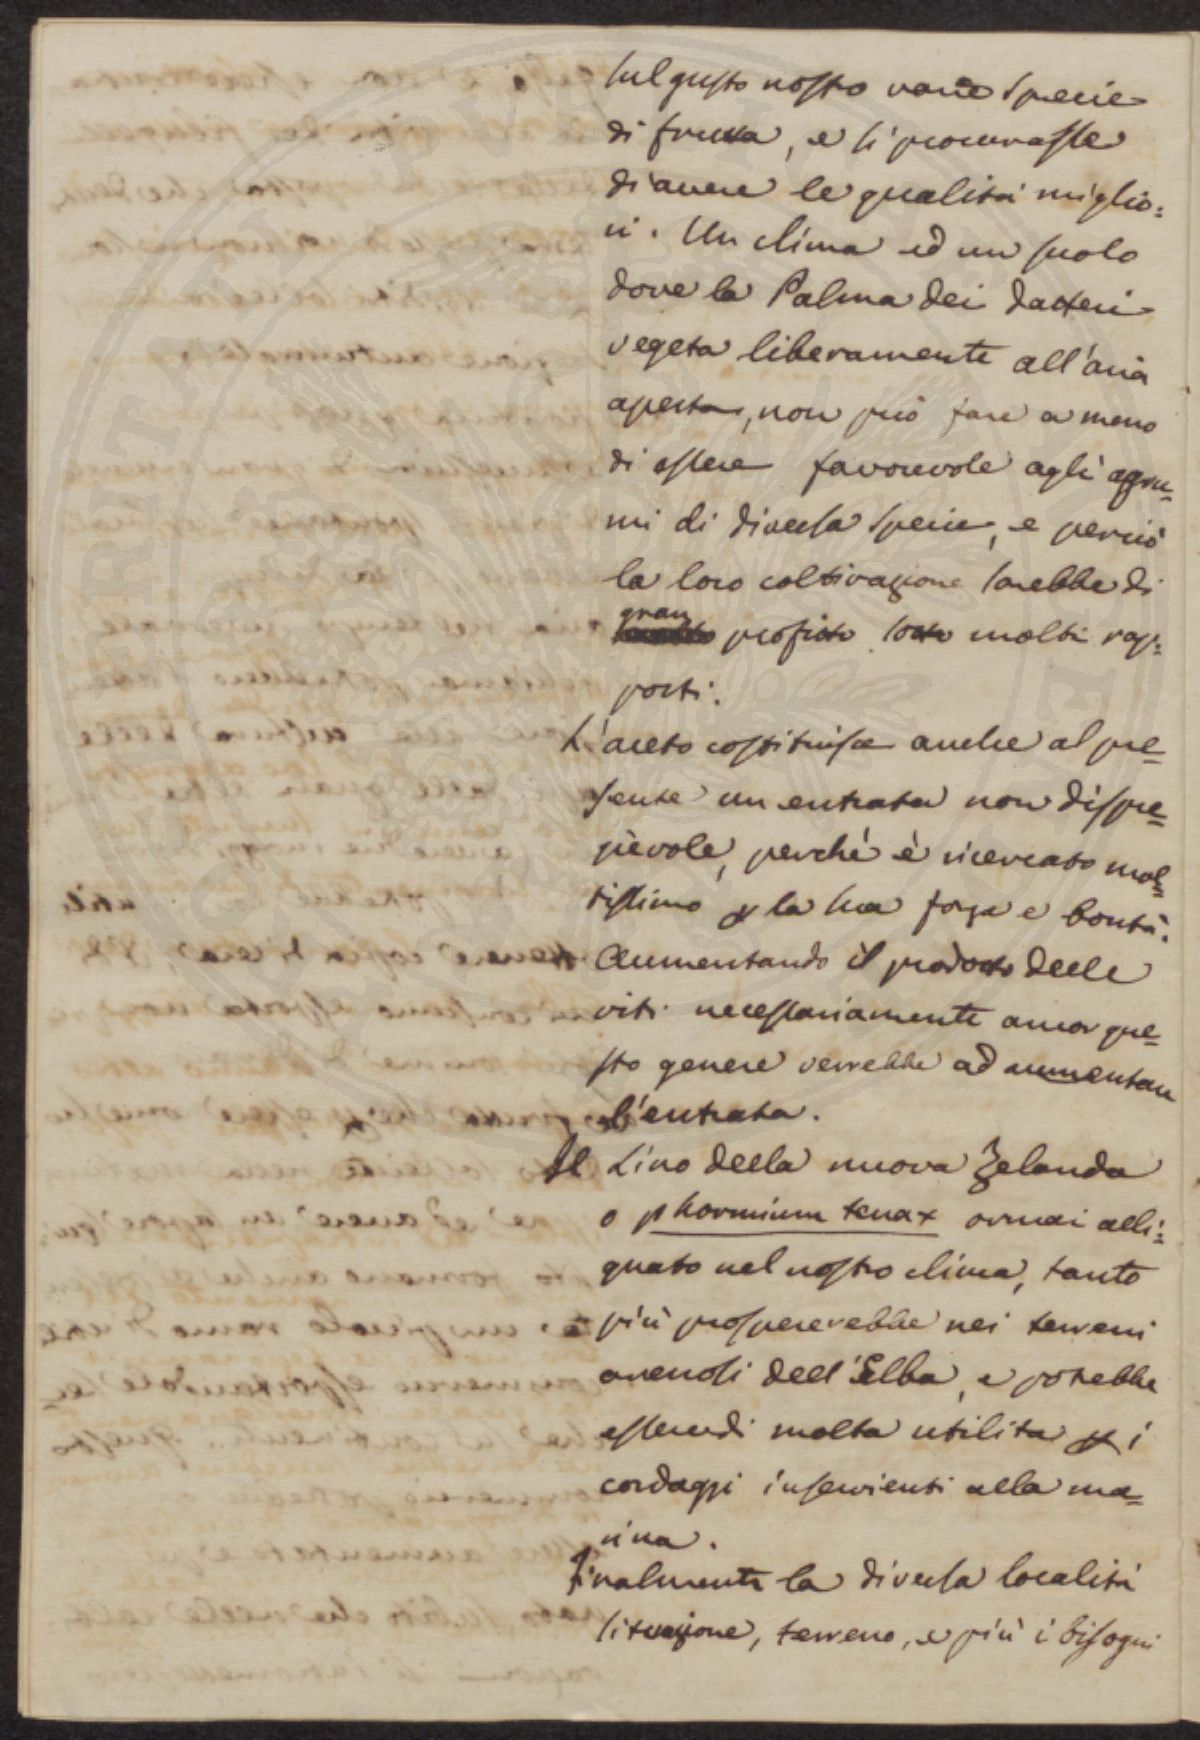 sul gusto nostro varie specie
di frutta, e si procurasse
di avere le qualità miglio=
ri. Un clima ed un suolo
dove la Palma dei datteri
vegeta liberamente all'aria
aperta, non può fare a meno
di essere favorevole agli agru=
mi di diversa specie, e perciò
la loro coltivazione sarebbe di
gran
profitto sotto molti rap=
porti.
L'aceto costituisce anche al pre=
sente un entrata non dispre=
gievole, perchè è ricercato mol=
tissimo p la sua forza e bontà.
Aumentando il prodotto delle
viti necessariamente ancor que=
sto genere verrebbe ad aumentare
l'entrata.
Il Lino della nuova Zelanda
o phormium tenax ormai alli=
gnato nel nostro clima, tanto
più prospererebbe nei terreni
arenosi dell'Elba, e potrebbe
esserci di molta utilità p i
cordaggi inservienti alla ma=
rina.
Finalmente la diversa località
situazione, terreno, e più i bisogni